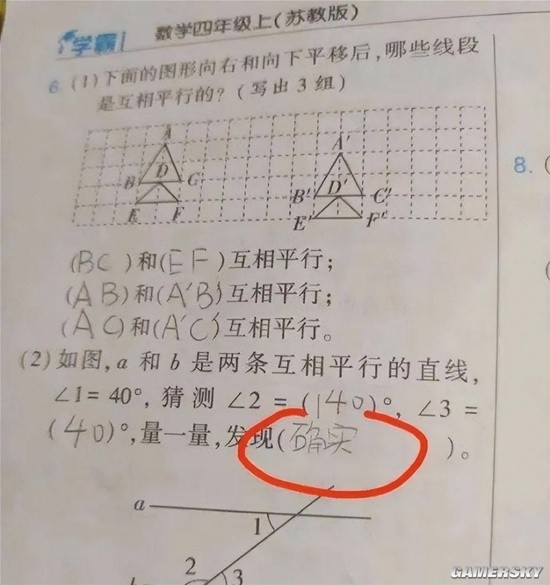 学霸 数学四年级上(苏教版)
6 (1)下面的图形向右和向下平移后,哪些线段
是互相平行的?(写出3组)
8.
A A′
B D C B′ D′ C′
E F E′ F′
(BC)和(EF)互相平行;
(AB)和(A′B′)互相平行;
(AC)和(A′C′)互相平行。
(2)如图,a 和 b 是两条互相平行的直线,
∠1=40°,猜测∠2=(140)°,∠3=
(40)°,量一量,发现(确实 )。
a
1
2
3
b
GAMERSKY